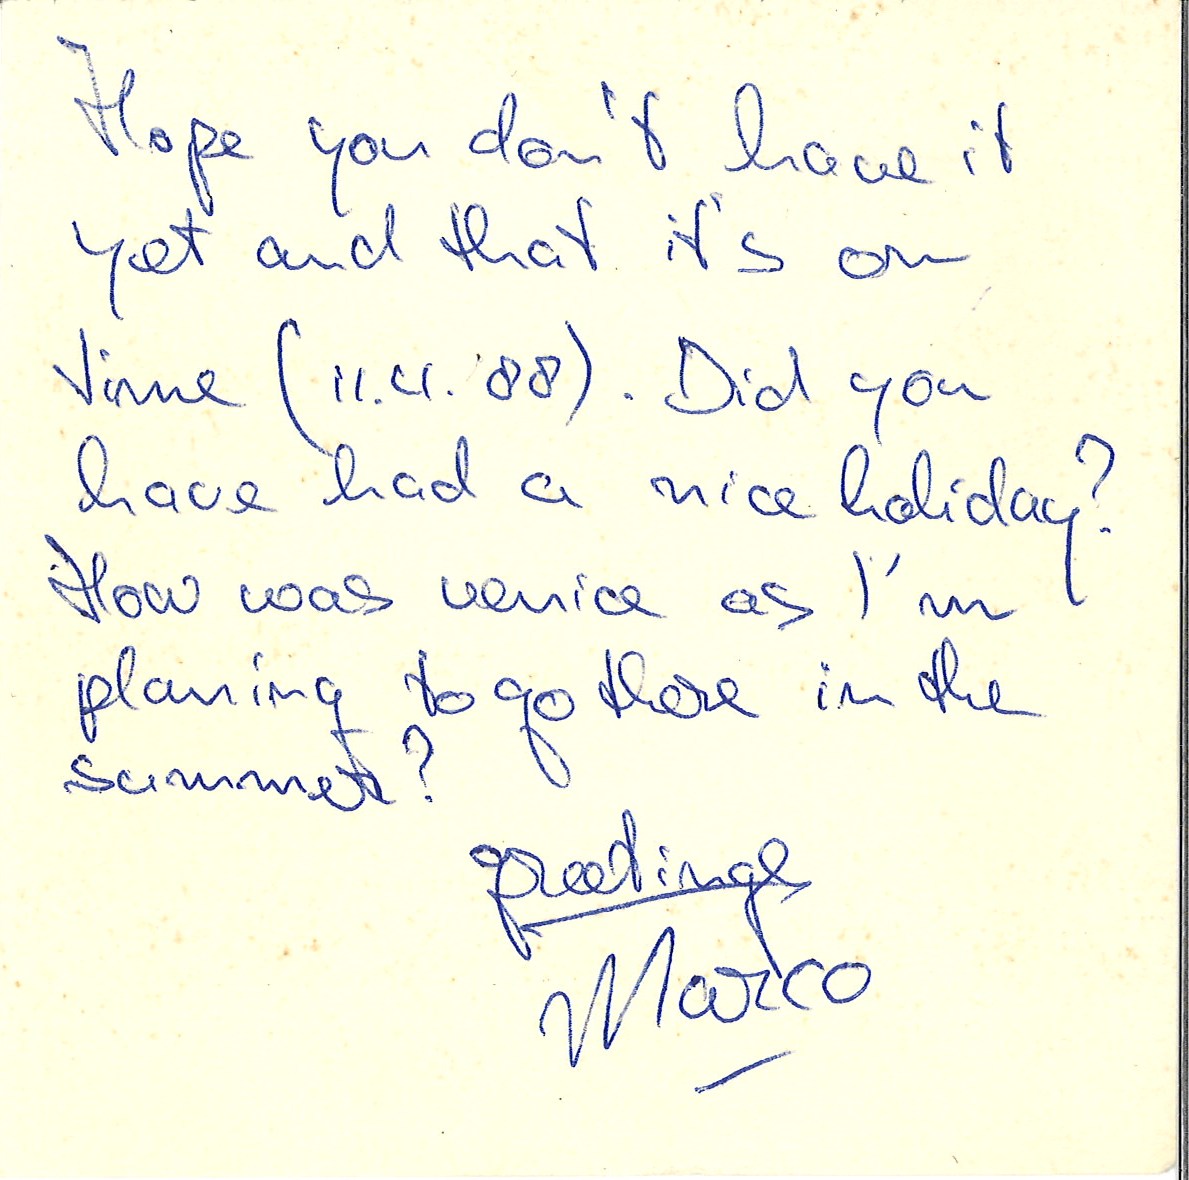 Hope you don't have it
yet and that it's on
time (11.4.'88). Did you
have had a nice holiday?
How was venice as I'm
planing to go there in the
summer?
greetings
Marco